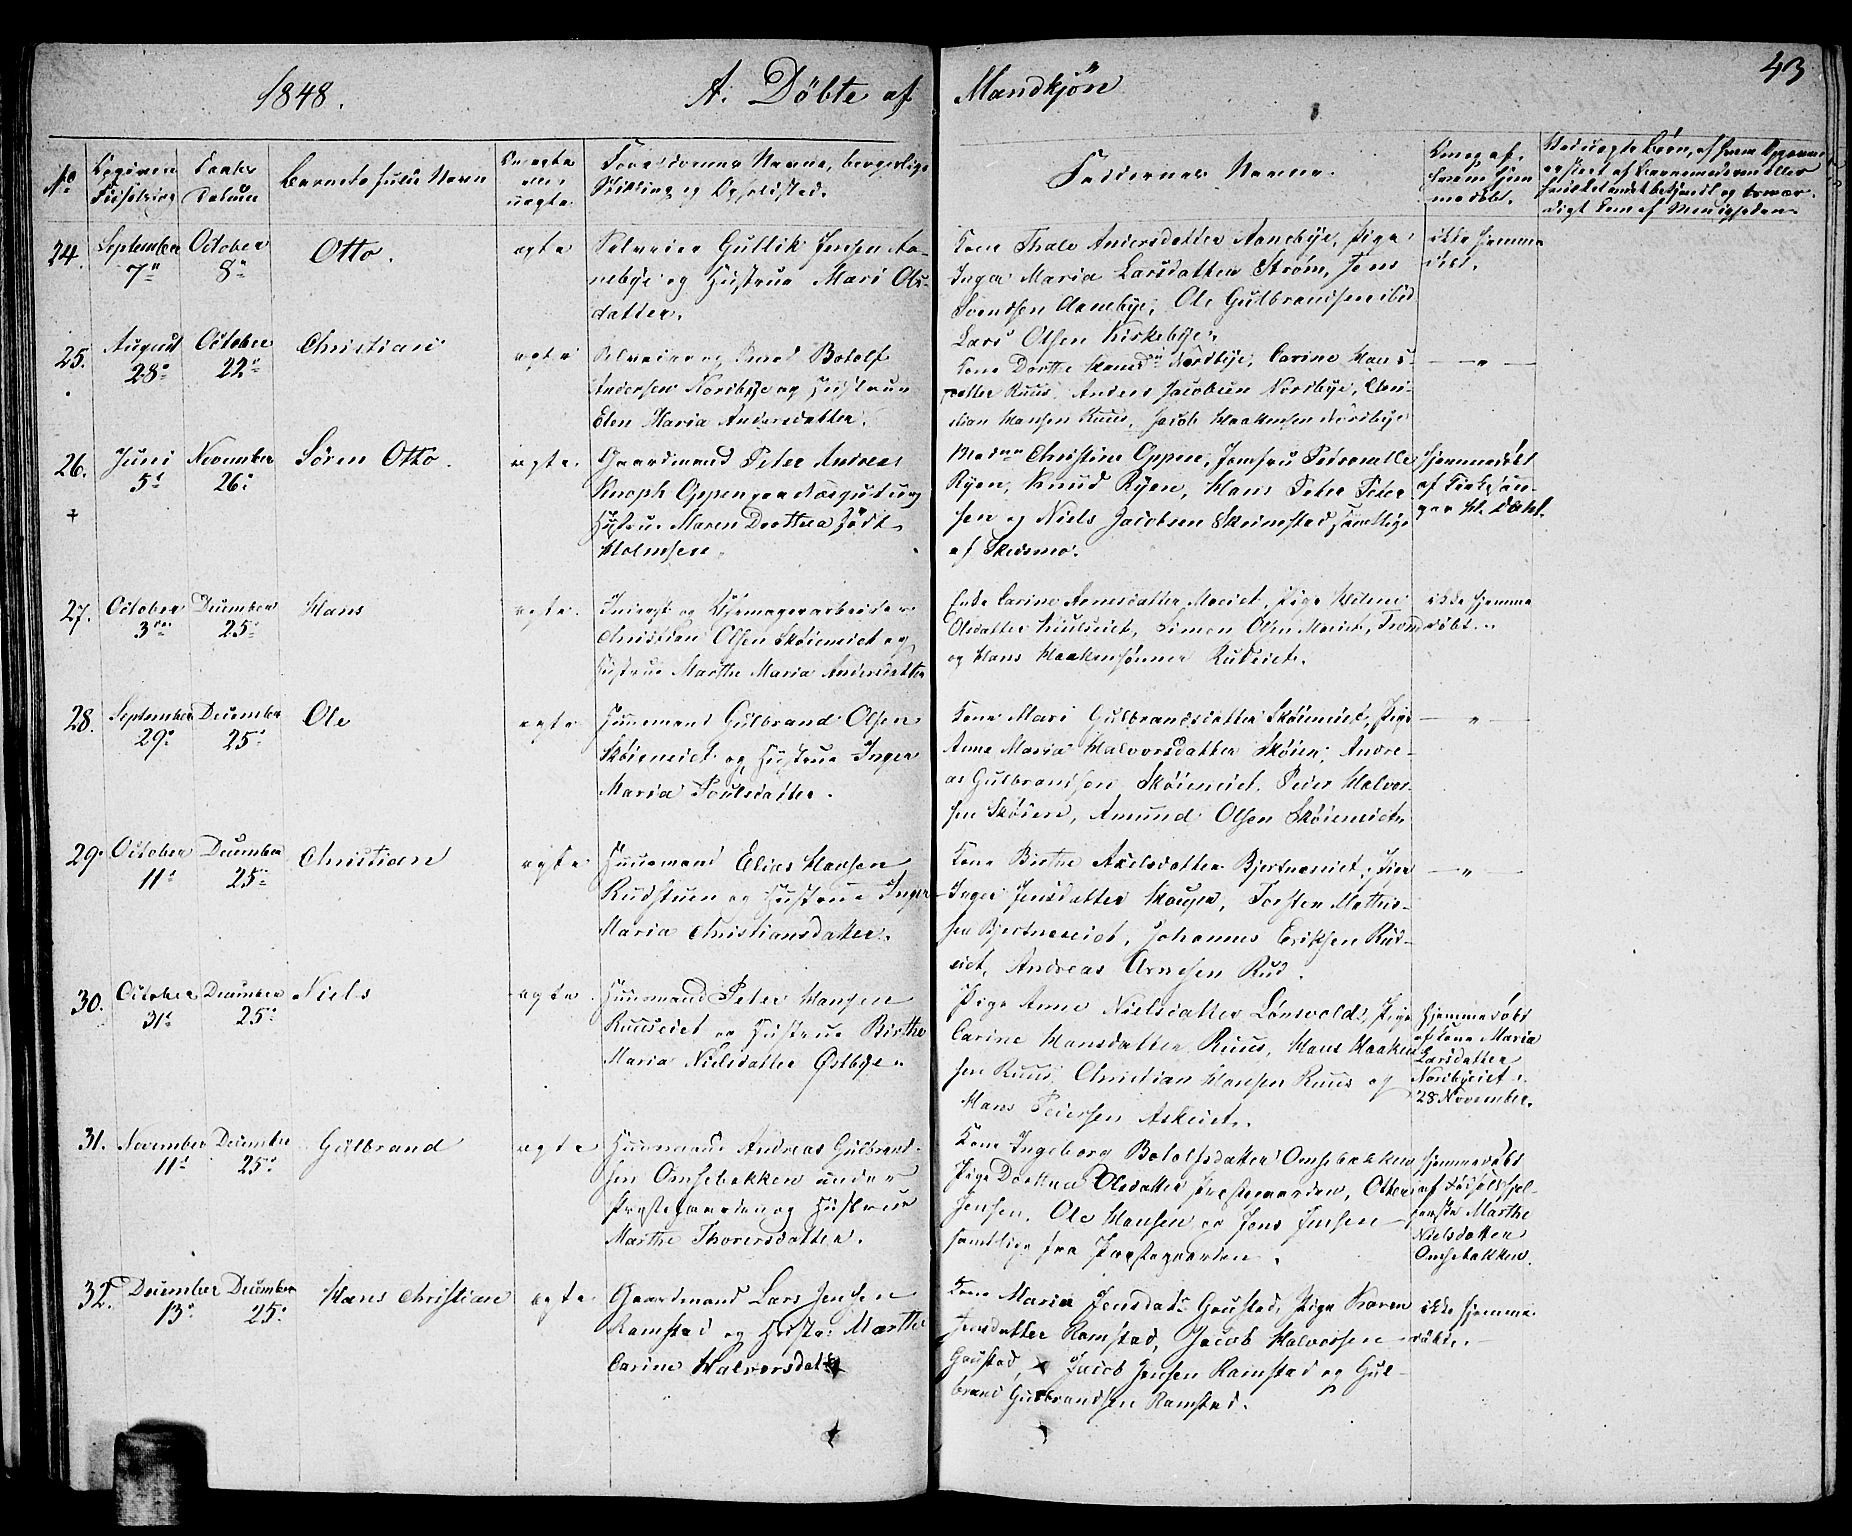 43
1848. A. Döbte af Mandkjön
No
Barnets fulde Navn
Foreldrenes Navne, borgerlige
Stilling og Opholdsted.
Faddernes Navne.
24. September 7de October 8de Otto. ægte Selveier Gullik Jensen Aa-
nebye og Hustrue Mari Ols-
datter.
Kone Thale Andersdatter Aanebye, Pige
Inger Maria Larsdatter Ström, Jens
Svendsen Aanebye, Ole Gulbrandsen ibid
Lars Olsen Kirkebye.
ikke hjemme
döbt.
25. August 28de October 22de Christian ægte Selveier og Smed Botolf
Andersen Nordbye og Hustrue
Elen Maria Andersdatter.
Kone Dorthe Nordbye, Carine Hans-
datter Ruus, Anders Jacobsen Nordbye, Chri-
stian Hansen Ruus, Jacob Haakensen Nordbye
— " —
26. Juni 5te November 26de Sören Otto. ægte. Gaardmand Peter Andreas
Knoph Oppengaard og
Hustrue Maren Dorthea födt
Holmsen.
Christine Oppen, Jomfru Petronelle
Ryen, Knud Ryen, Hans Peter Peter-
sen og Niels Jacobsen Skeimstad samtlige
af Skedsmo.
Hjemmedöbt
af Kirkesan-
ger H. Dahl.
27. October 3die December 25de Hans ægte. Inderst og Skomagerarbeider
Christian Olsen Sköieneiet og
Hustrue Marthe Maria Andersdatter
Enke Carine Arnesdatter Moeiet, Pige Helene
Olsdatter Huulseiet, Simen Olsen Moeiet, Trond
og Hans Haakensönner Rudeiet.
ikke hjemme
döbt.
28. September 29de December 25de Ole ægte Huusmand Gulbrand Olsen
Sköieneiet og Hustrue Inger
Maria Poulsdatter.
Kone Mari Gulbrandsdatter Sköieneiet, Pige
Anne Maria Halvorsdatter Sköien, Andre-
as Gulbrandsen Sköieneiet, Peder Halvor-
sen Sköien, Amund Olsen Sköieneiet
— " —
29. October 11te December 25de Christian ægte Huusmand Elias Hansen
Rudstuen og Hustrue Inger
Maria Christiansdatter.
Kone Birthe Axelsdatter Bjertneseiet, Pige
Inger Jensdatter Hougen, Torsten Mathie-
sen Bjertneseiet, Johannes Eriksen Rud-
eiet, Andreas Arnesen Rud.
— " —
30. October 31te December 25de Niels ægte Huusmand Peter Hansen
Ruuseiet og Hustrue Birthe
Maria Nielsdatter Østbye.
Pige Anne Nielsdatter Lönsvold, Pige
Carine Hansdatter Ruus, Hans Haaken-
sen Ruus, Christian Hansen Ruus og
Hans Pedersen Askeiet.
Hjemmedöbt
af Kone Maria
Larsdatter
Nordbyeiet
28 November.
31. November 11te December 25de Gulbrand ægte Huusmand Andreas Gulbrand-
sen Omsebakken under
Præstegaarden og Hustrue
Marthe Thoversdatter.
Kone Ingeborg Botolfsdatter Omsebakken
Pige Dorthea Olsdatter Præstegaarden, Otter
Jensen, Ole Hansen og Jens Jensen
samtlige fra Præstegaarden.
hjemmedöbt
af Födselshjel-
perske Marthe
Nielsdatter
Omsebakken.
32. December 13de December 25de Hans Christian ægte Gaardmand Lars Jensen
Ramstad og Hustr: Marthe
Carine Halvorsdatt
Kone Maria Jensdatt Goustad, Pige Karen
Jensdatter Ramstad, Jacob Halvorsen
Goustad, Jacob Jensen Ramstad og Gul-
brand Gulbrandsen Ramstad.
ikke hjemme-
döbt.